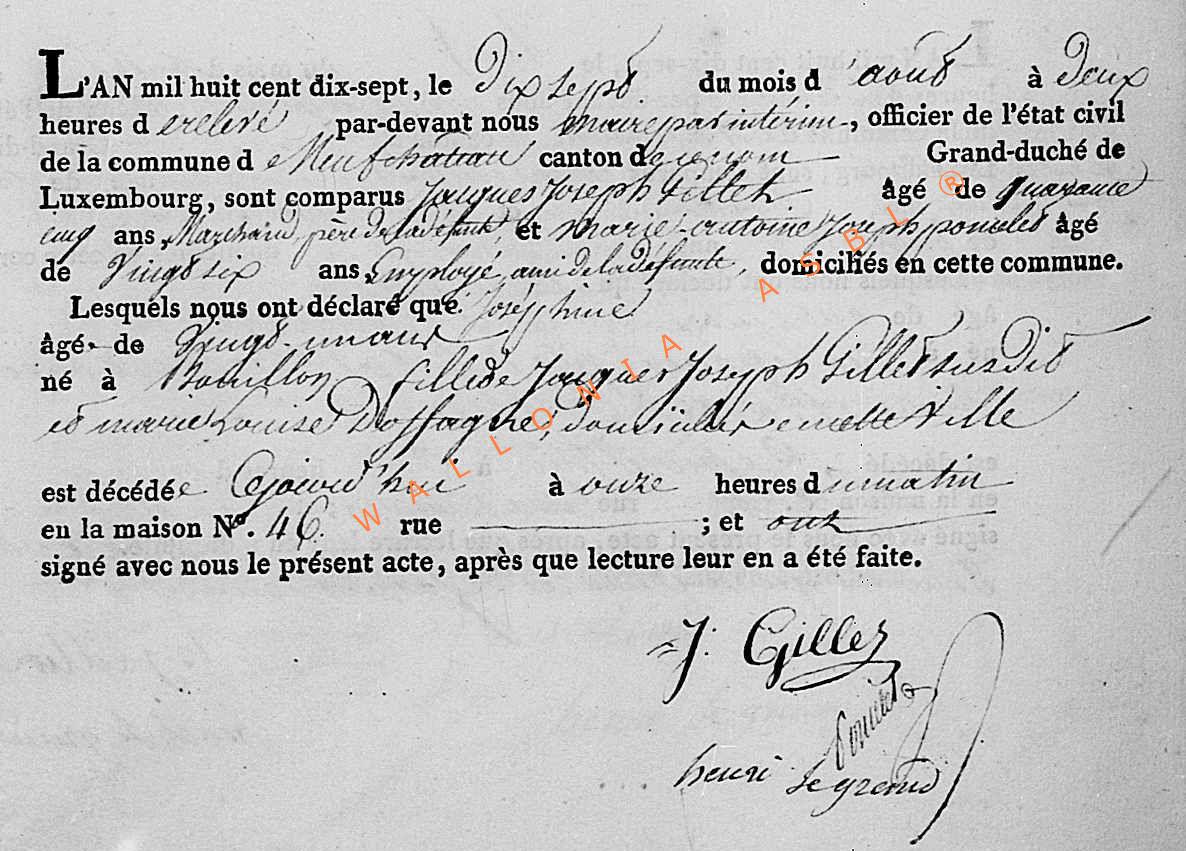 L'AN mil huit cent dix-sept, le Dix sept du mois d'aout à Deux
heures de relevé par-devant nous maire par intérim, officier de l'état civil
de la commune de Neufchateau canton de ce nom Grand-duché de
Luxembourg, sont comparus Jacques Joseph Gillet âgé de quarante
cinq ans, Marchand, père de la défunte, et marie-antoine Joseph âgé
de Vingt six ans, Employé, ami de la défunte, domiciliés en cette commune.
Lesquels nous ont déclaré que Joséphine
âgé de Vingt-un ans
né à Bouillon fille de Jacques Joseph Gillet susdit
et marie Louise Doffagne, domiciliés en cette Ville
est décédée aujourd'hui à onze heures du matin
en la maison N°. 46 rue ; et ont
signé avec nous le présent acte, après que lecture leur en a été faite.
J: Gillet
henri Legrand
WALLONIA ASBL ®